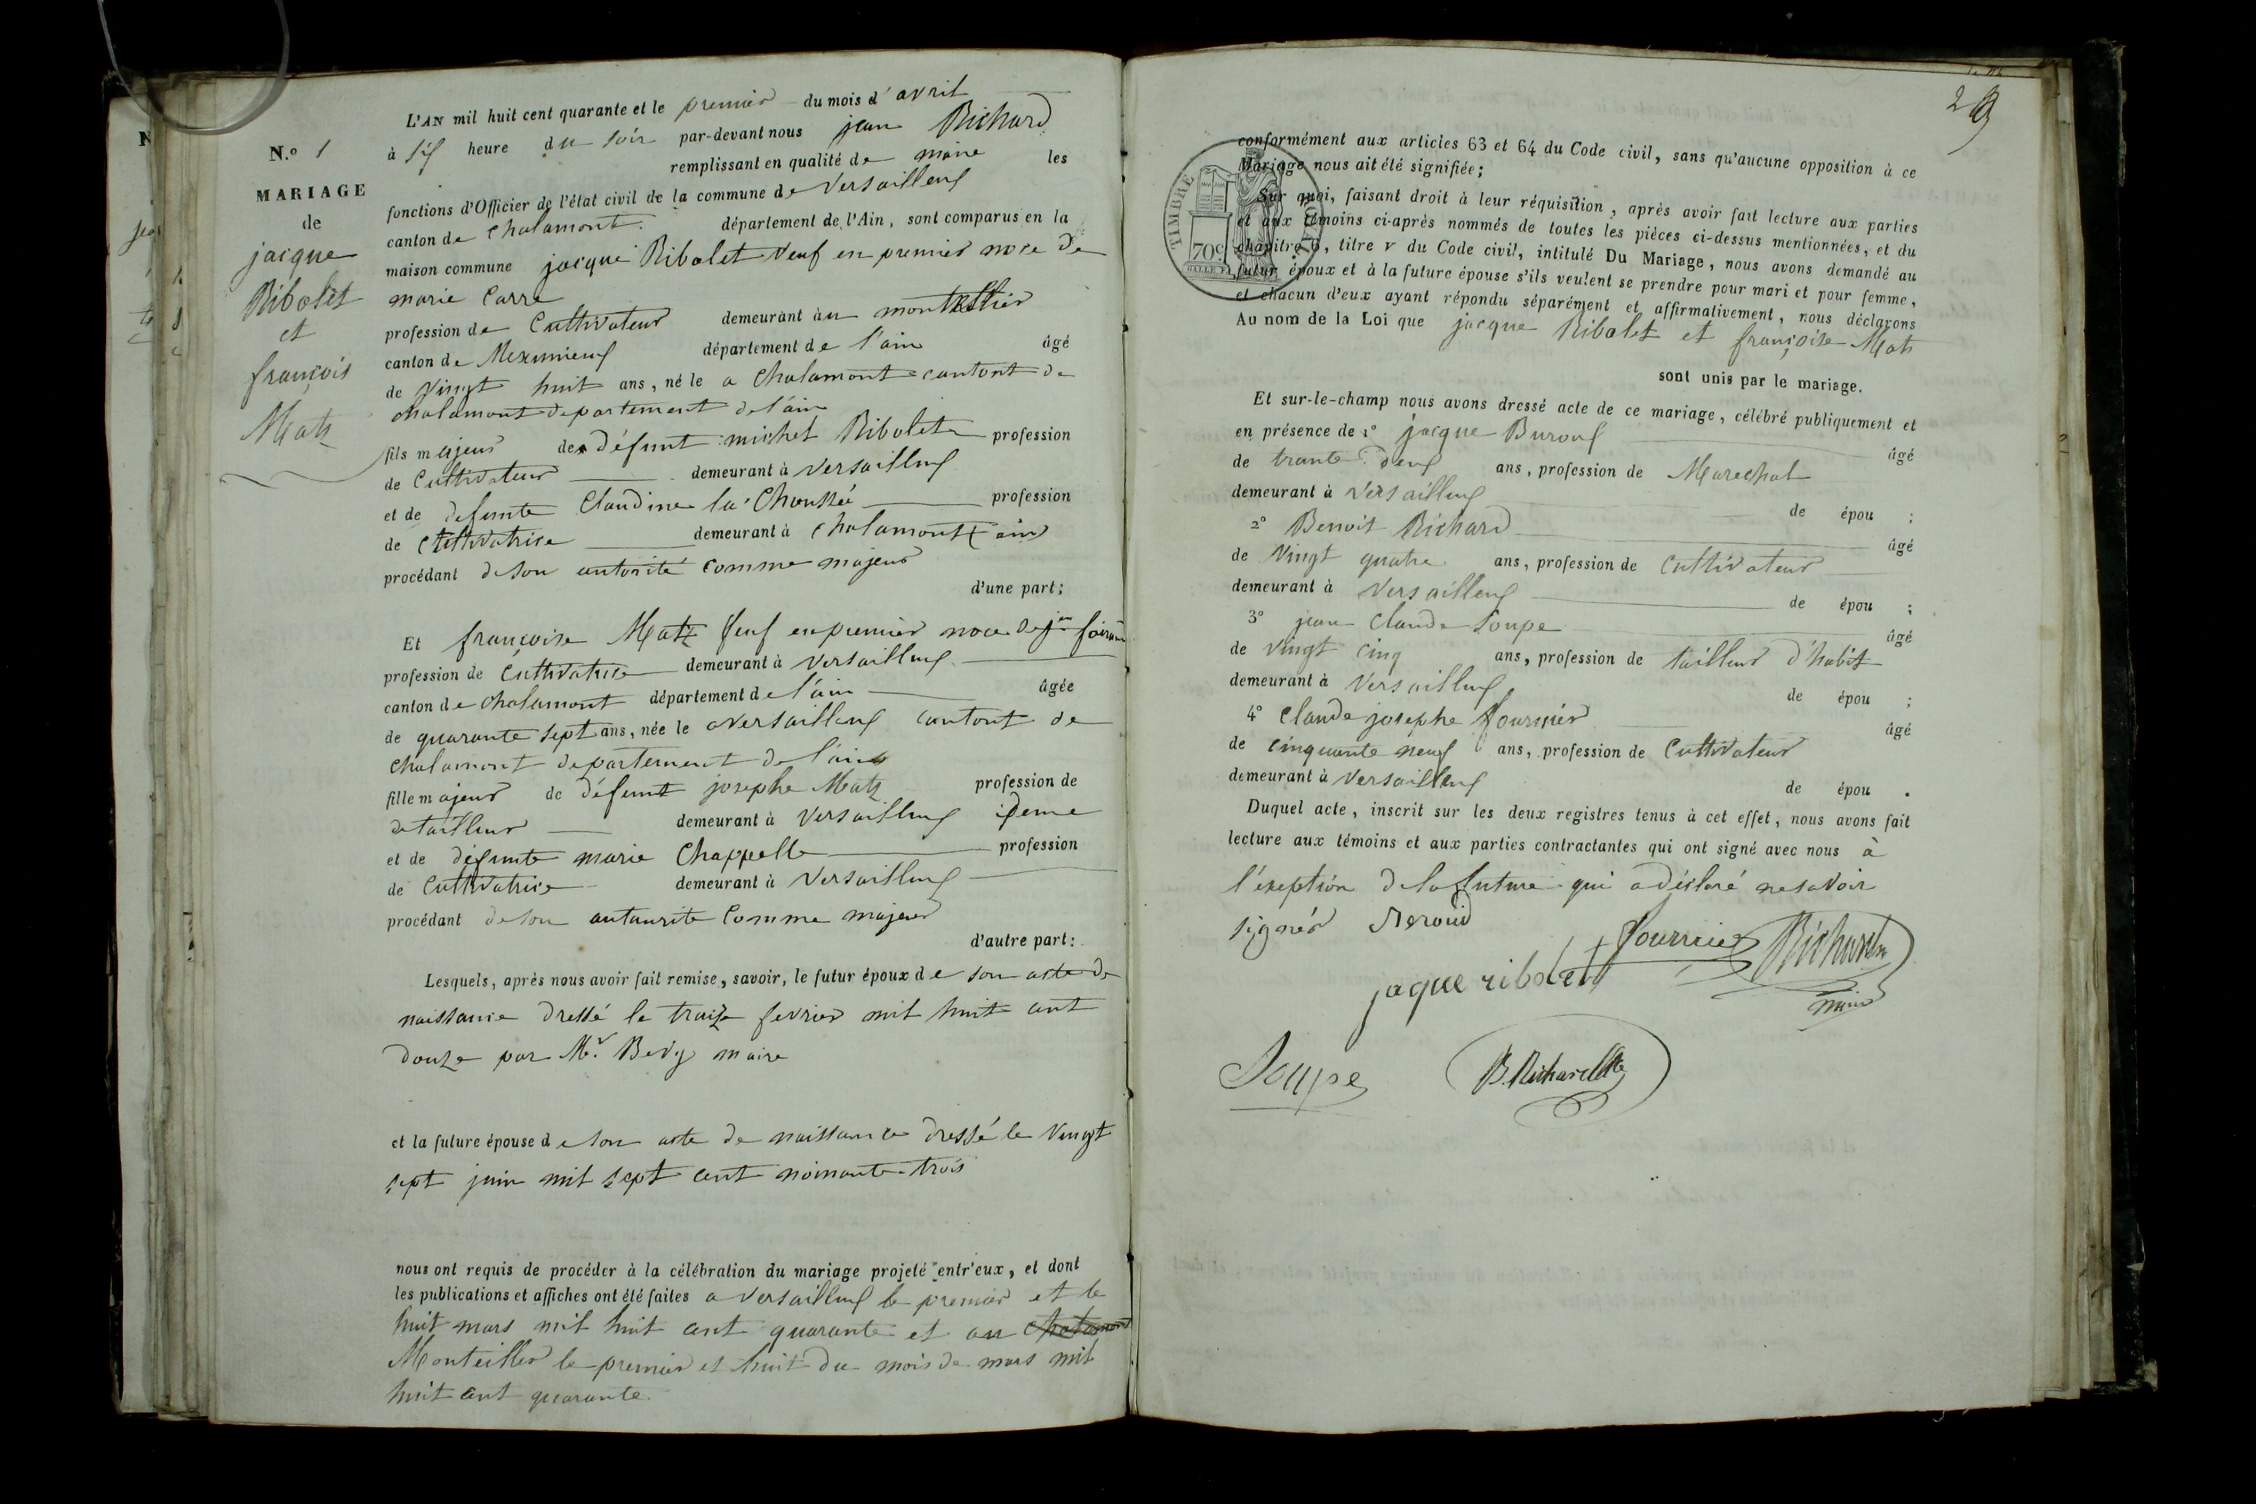 N.o 1
MARIAGE
de
jacque
Ribolet
et
françois
Matz
L'AN mil huit cent quarante et le premier du mois d'avril
à six heure du soir par-devant nous jean Richard
remplissant en qualité de maire les
fonctions d'Officier de l'état civil de la commune de Versailleux
canton de Chalamont département de l'Ain, sont comparus en la
maison commune jacque Ribolet Veuf en premier noce de
marie Carre
profession de Cultivateur demeurant au montellier
canton de Meximieux département de l'ain âgé
de Vingt huit ans, né le a Chalamont cantont de
chalamont departement de l'ain
fils majeur de défunt michel Ribolet profession
de Cultivateur demeurant à Versailleux
et de defunte Claudine la Chaussée profession
de Cultivatrice demeurant à Chalamont (ain
procédant de son autorité comme majeur
d'une part;
Et françoise Matz Veuf en premier noce de jn
profession de Cultivatrice demeurant à Versailleux
canton de chalamont département de l'ain âgée
de quarante sept ans, née le a Versailleux cantont de
chalamont departement de l'ain
fille majeur de défunt josephe Matz profession de
de tailleur demeurant à Versailleux ideme
et de défunte marie Chappelle profession
de Cultivatrice demeurant à Versailleux
procédant de sonautaurite comme majeur
d'autre part:
Lesquels, après nous avoir fait remise, savoir, le futur époux de son acte de
naissance dressé le traize fevrier mil huit cent
douze par Mr. Bevy maire
et la future épouse de son acte de naissance dressé le Vingt
sept juin mil sept cent nonante trois
nous ont requis de procéder à la célébration du mariage projeté entr'eux, et dont
les publications et affiches ont été faites a Versailleux le premier et le
huit mars mil huit cent quarante et au chalamont
Monteillier le premier et huit du mois de mars mil
huit cent quarante
TIMBRE ROYAL
70c
conformément aux articles 63 et 64 du Code civil, sans qu'aucune opposition à ce
Mariage nous ait été signifiée;
Sur quoi, faisant droit à leur réquisition, après avoir fait lecture aux parties
et aux témoins ci-après nommés de toutes les pièces ci-dessus mentionnées, et du
chapitre 6, titre v du Code civil, intitulé Du Mariage, nous avons demandé au
futur époux et à la future épouse s'ils veulent se prendre pour mari et pour femme,
et chacun d'eux ayant répondu séparément et affirmativement, nous déclarons
Au nom de la Loi que jacque Ribolet et françoise Matz
sont unis par le mariage.
Et sur-le-champ nous avons dressé acte de ce mariage, célébré publiquement et
en présence de 1o jacque Buroux âgé
de trante deux ans, profession de Marechal
demeurant à Versailleux de épou ;
2o Benoit Richard âgé
de Vingt quatre ans, profession de Cultivateur
demeurant à Versailleux de épou ;
3o jean Claude Soupe âgé
de Vingt cinq ans, profession de tailleur d'habit
demeurant à Versailleux de épou ;
4o Claude josephe fournier âgé
de cinquante neuf ans, profession de Cultivateur
demeurant à Versailleux de épou .
Duquel acte, inscrit sur les deux registres tenus à cet effet, nous avons fait
lecture aux témoins et aux parties contractantes qui ont signé avec nous à
l'exeption de la future qui a déclaré ne savoir
signér
fournier Richard
jaque ribolet
maire
Soupe B. Richard